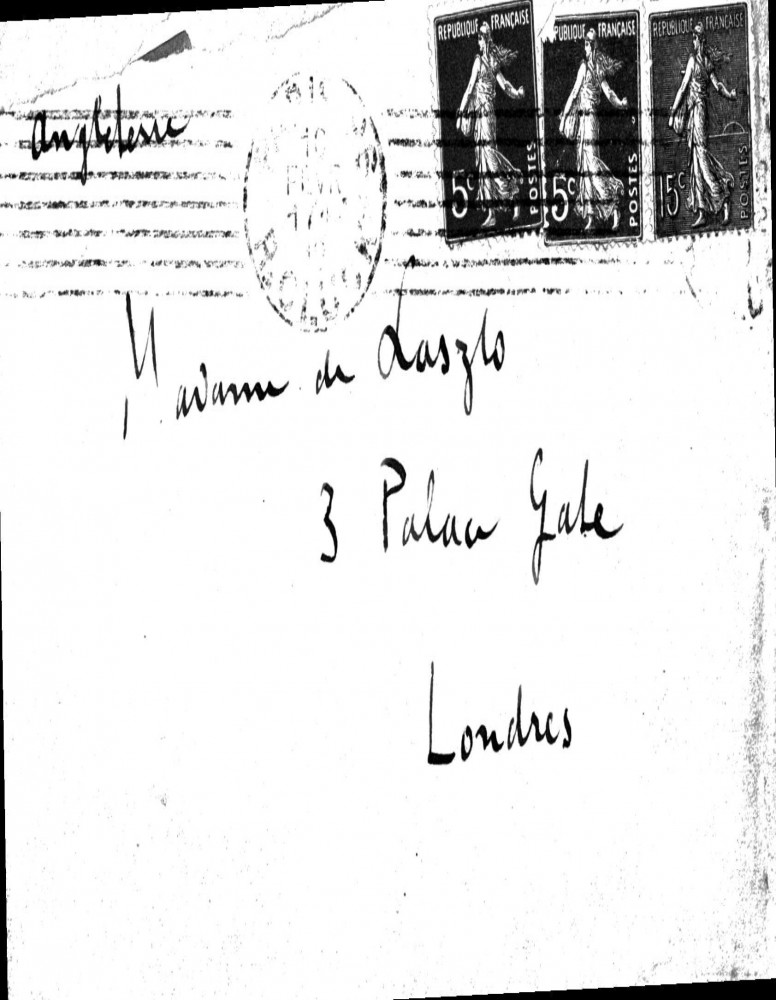 REPUBLIQUE FRANÇAISE REPUBLIQUE FRANÇAISE REPUBLIQUE FRANÇAISE
5c POSTES 5c POSTES 15c POSTES
Angleterre
Madame de Laszlo
3 Palace Gate
Londres